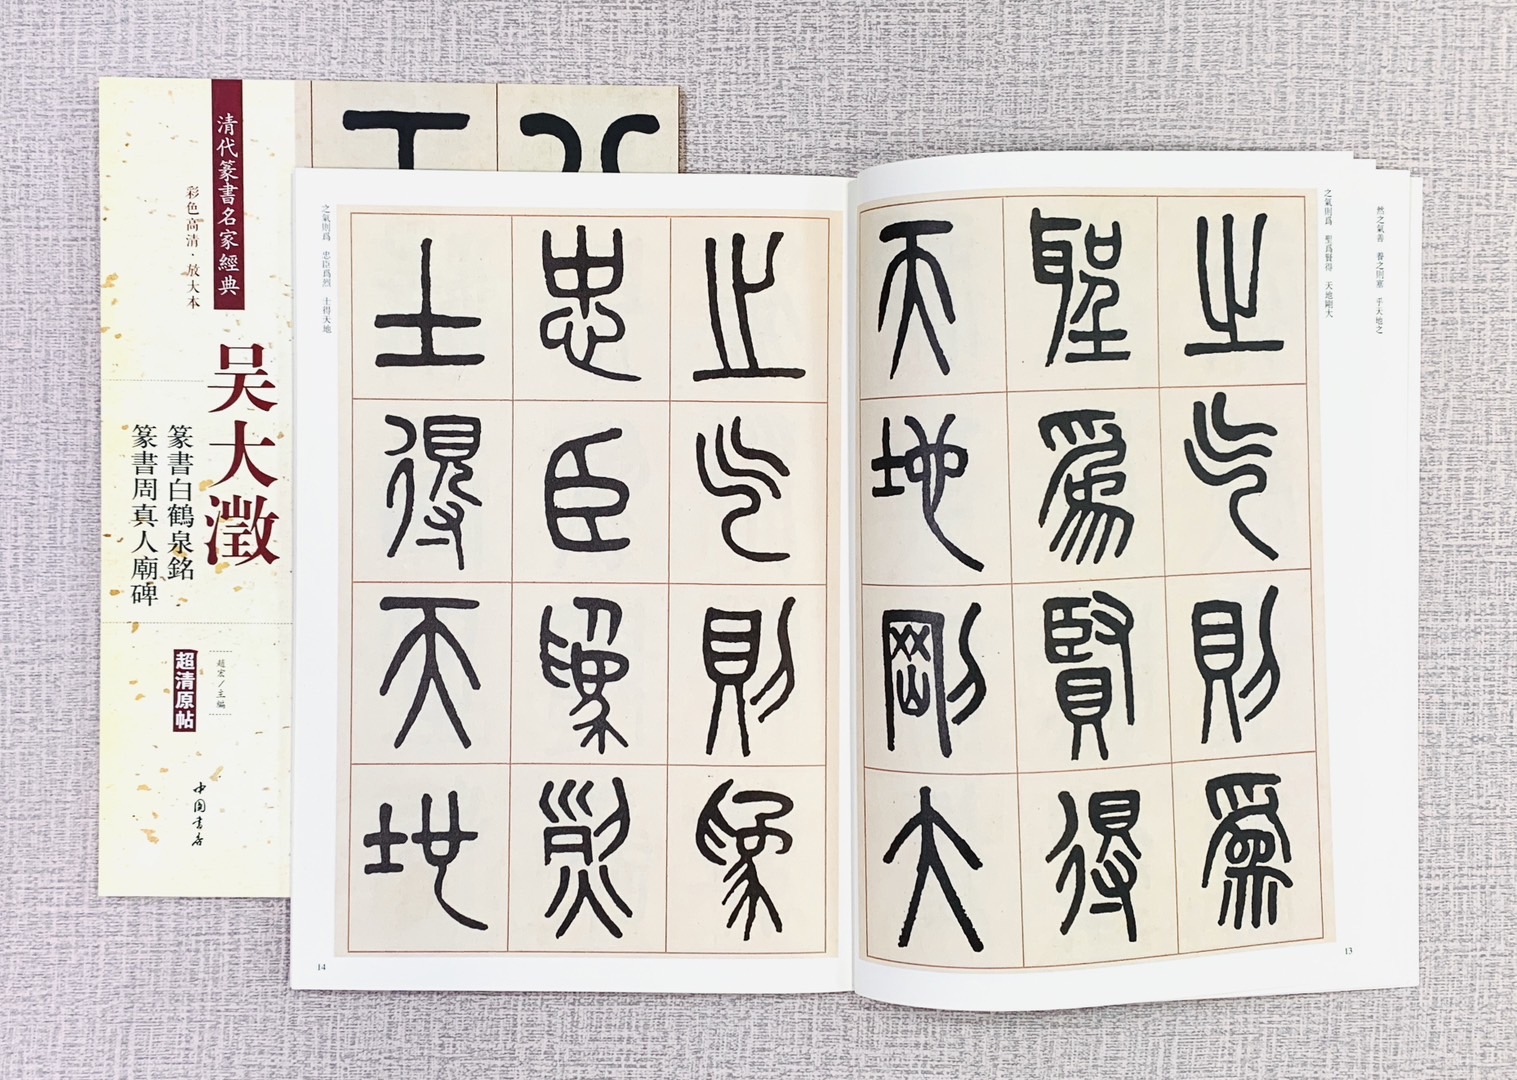 清代篆書名家經典
彩色高清·放大本
吴大澂
篆書白鶴泉銘
篆書周真人廟碑
趙宏/主編
超清原帖
中国書店
然之氣善 養之則塞 乎天地之
之氣則爲 聖爲賢得 天地剛大
之氣則爲
聖爲賢得
天地剛大
13
之氣則爲
忠臣爲烈
士得天地
之氣則爲 忠臣爲烈 士得天地
14